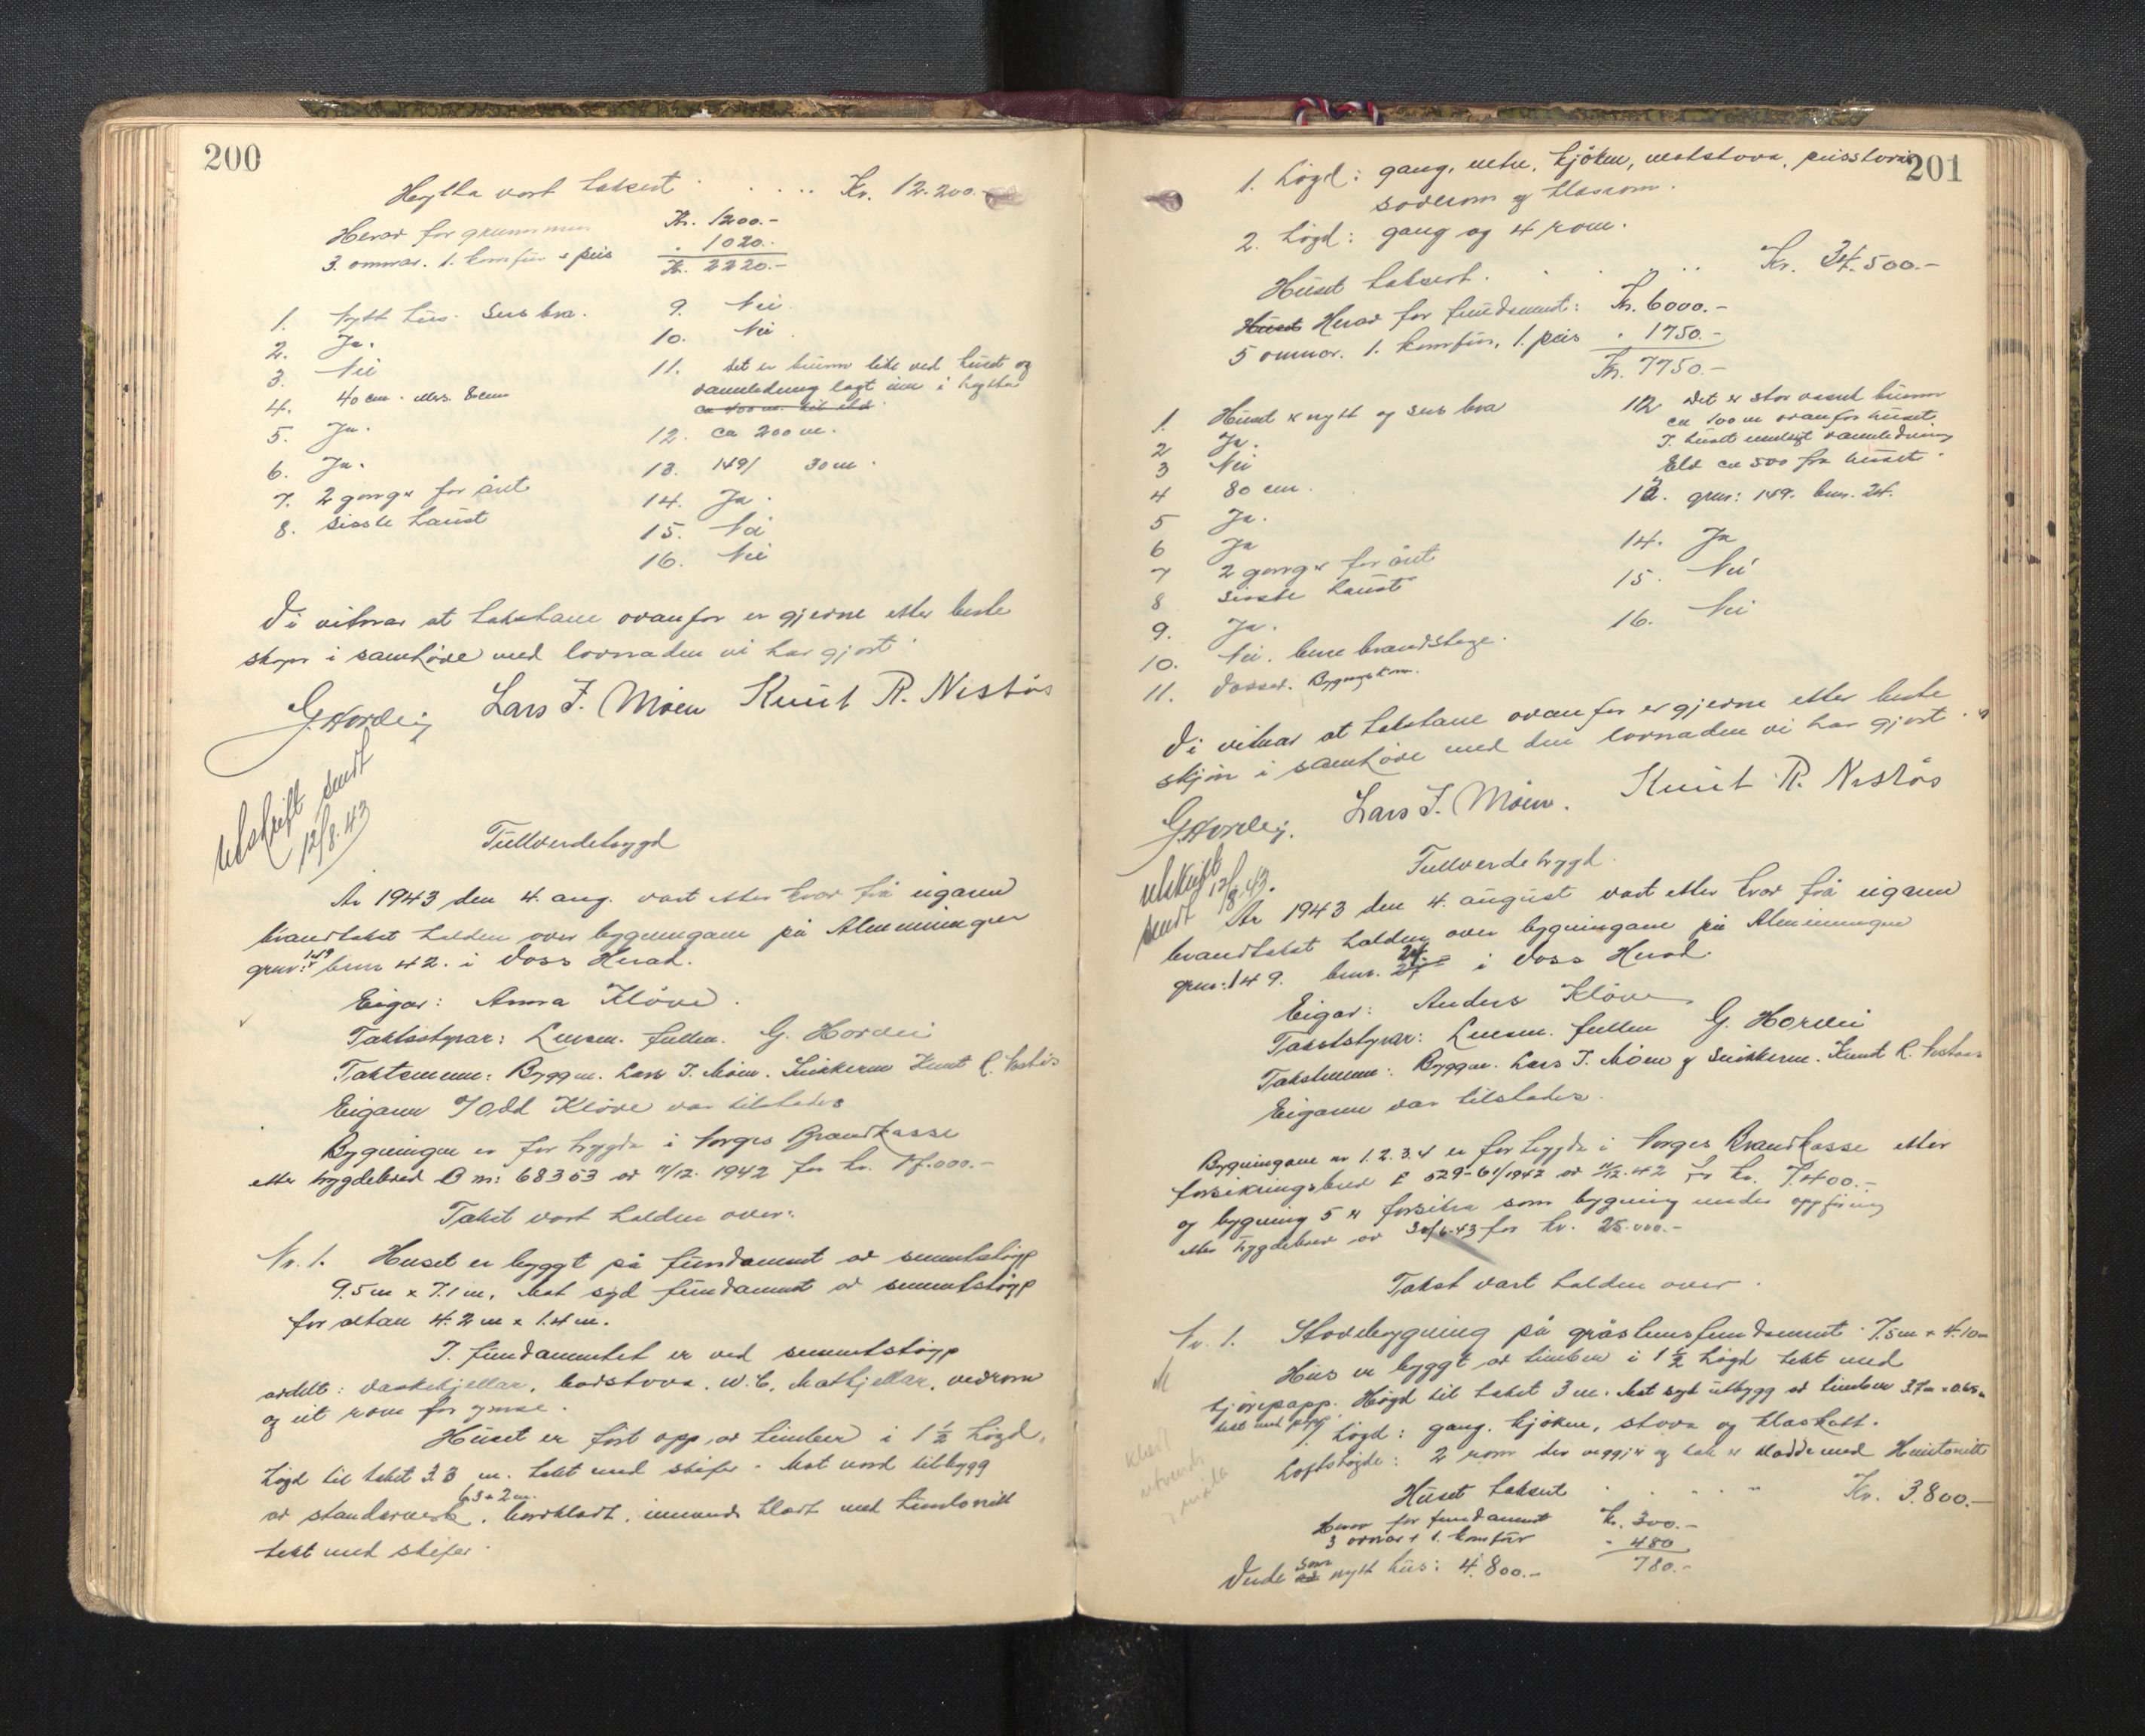 200
Hytta vart taksert . . . . Kr. 12.200.-
Herav for grunnmur Kr. 1200.-
3. omnar. 1. komfür + peis " 1020.-
Kr. 2220.-
1. Nytt hus. Sers bra.
2. Ja.
3. Nei
4. 40 cm.
5. Ja.
6. Ja.
7. 2 gonger for året
8. sisste haust
9. Nei.
10. Nei
11. Det er brunn like ved huset og
vannledning lagt inn i hytta
12. ca 200 m.
13. 149/ 30 m.
14. Ja.
15. Nei
16. Nei
Vi vitnar at takstane ovanfor er gjerne etter beste
skjøn i samhøve med lovnaden vi har gjort.
G. Horvei Lars J. Møen Knut R. Nestås
Utskrift sendt
12/8.43
Fullverdetrygd
År 1943 den 4. aug. vart etter krav frå eigaren
brandtakst halden over bygningane på Alemenningen
gnr: 149 bnr 42. i Voss Herad.
Eigar: Anna Kløve.
Takstsstyrar: Lensm. fullm. G. Horvei
Takstemenn: Byggm. Lars J. Møen. Snikkerm Knut R. Nestås
Eigaren v/ Odd Kløve var tilstades
Bygningen er for trygda i Norges Brandkasse
etter trygdebrev B nr: 68353 av 11/12. 1942 for kr. 17.000.-
Takst vart halden over:
Nr. 1. Huset er byggt på fundament av sementstøyp
9.5 m x 7.1 m. Mot syd fundament av sementstøyp
for altan 4.2 m x 1.4 m.
I. fundamentet er ved sementstøyp
avdelt: vaskekjellar, badstova, W.C, Matkjellar, vedrom
og eit rom for ymse.
Huset er ført opp av timber i 1 1/2 høgd,
høgd til taket 3.3 m. tekt med skifer. Mot nord tilbygg
6.3 x 2 m.
av standarverk, bordkledt, innvendi kledt med huntonitt
tekt med skifer.
201
1. høgd: gang, entre, kjøken, matstova, peisstova
soverom og klesrom.
2. høgd: gang og 4 rom.
Huset taksert. . . . . Kr. 34.500.-
Huset Herav for fundament: Kr. 6000.-
5 omnar. 1. komfür, 1. peis " 1750.-
Kr. 7750.-
1. Huset er nytt og sers bra
2 Ja.
3 Nei
4 80 cm.
5 Ja.
6 Ja
7 2 gonger for året
8 sisste haust
9. Ja.
10. Nei. berre brandstege.
11. Vossev. Bygningskom.
12. Det er stor vassrik brunn
ca 100 m ovanfor huset.
I. huset innlagt vannledning
Elv ca 500 fra huset.
13. gnr: 149. bnr. 24.
14. Ja
15. Nei
16. Nei
Vi vitnar at takstane ovanfor er gjerne etter beste
skjøn i samhøve med den lovnaden vi har gjort.
G. Horvei. Lars J. Møen. Knut R. Nestås
Utskrift
sendt 12/8.43.
Fullverdetrygd.
År 1943 den 4. august vart etter krav frå eigaren
brandtakst halden over bygningane på Alemenningen
gnr: 149. bnr. 24. i Voss Herad.
Eigar: Anders Kløve
Takststyrar: Lensm. fullm G. Horvei
Takstmenn: Byggm. Lars J. Møen og Snikkerm. Knut R. Nestaas
Eigaren var tilstades.
Bygningane nr 1. 2. 3. 4 er for trygda i Norges Brandkasse etter
forsikringsbrev E 529-61/1942 av 11/12.42 for kr. 7.400.-
og bygning 5 er forsikra som bygning under oppføring
etter trygdebrev av 30/6.43 for kr. 25.000.-
Takst vart halden over.
Nr. 1. Stovebygning på gråsteinsfundament 7.5 m x 4.10 m
Hus er byggt av timber i 1 1/2 høgd tekt med
tjørepapp. Høgd til taket 3 m. Mot syd utbygg av timber 3.7 m x 0.65 m
tekt med papp. 1. høgd: gang, kjøken, stova og kleskott.
Loftshøgde: 2 rom der veggjer og tak er kledde med Huntonitt
Huset taksert . . . . Kr. 3.800.-
herav for fundament Kr. 300.-
3 ovnar + 1. komfür " 480
780.-
Verde som nytt hus: 4.800.-